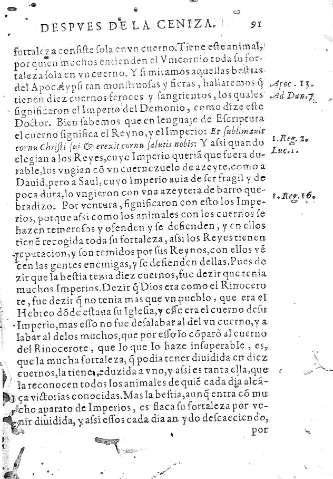 DESPVES DE LA CENIZA. 91
fortaleza consiste sola en vn cuerno. Tiene este animal,
por quien muchos entienden el Vnicornio toda su for-
taleza sola en vn cuerno. Y si miramos aquellas bestias
del Apocalypsi tan monstruosas y fieras, hallaremos q̃
tienen diez cuernos feroces y sangrientos, los quales
significaron el Imperio del Demonio, como dize este
Doctor. Bien sabemos que en lenguaje de Escriptura
el cuerno significa el Reyno, y el Imperio: Et sublimauit
cornu Christi sui & erexit cornu salutis nobis: Y assi quando
elegian a los Reyes, cuyo Imperio queria que fuera du-
rable, los vngian cõ vn cuernezuelo de azeyte, como a
Dauid, pero a Saul, cuyo imperio auia de ser fragil y de
poca dura, lo vngieron con vna azeytera de barro que-
bradizo. Por ventura, significaron con esto los Impe-
rios, porque assi como los animales con los cuernos se
hazen temerosos y ofenden y se defienden, y en ellos
tienẽ recogida toda su fortaleza, assi los Reyes tienen
reputacion, y son temidos por sus Reynos, con ellos vẽ
cen las gentes enemigas, y se defienden dellas. Pues de
zir que la bestia tenia diez cuernos, fue dezir que tenia
muchos Imperios. Dezir q̃ Dios era como el Rinocero
te, fue dezir que no tenia mas que vn pueblo, que era el
Hebreo dõde estaua su Iglesia, y esse era el cuerno desu
Imperio, mas esso no fue desalabar al del vn cuerno, y a
labar al de los muchos, que por esso lo cõparò al cuerno
del Rinocerote, que lo que lo haze insuperable, es,
que la mucha fortaleza, q̃ podia tener diuidida en diez
cuernos, la tiene reduzida a vno, y assi es tanta ella, que
la reconocen todos los animales de quiẽ cada dia alcã-
ça victorias conocidas. Mas la bestia, aunq̃ entra cõ mu
cho aparato de Imperios, es flaca su fortaleza por ve-
nir diuidida, y assi essos cada dia an ydo descaeciendo,
por
Apoc. 13.
Ad Dan. 7.
1. Reg. 2.
Luc. 1.
1. Reg. 16.